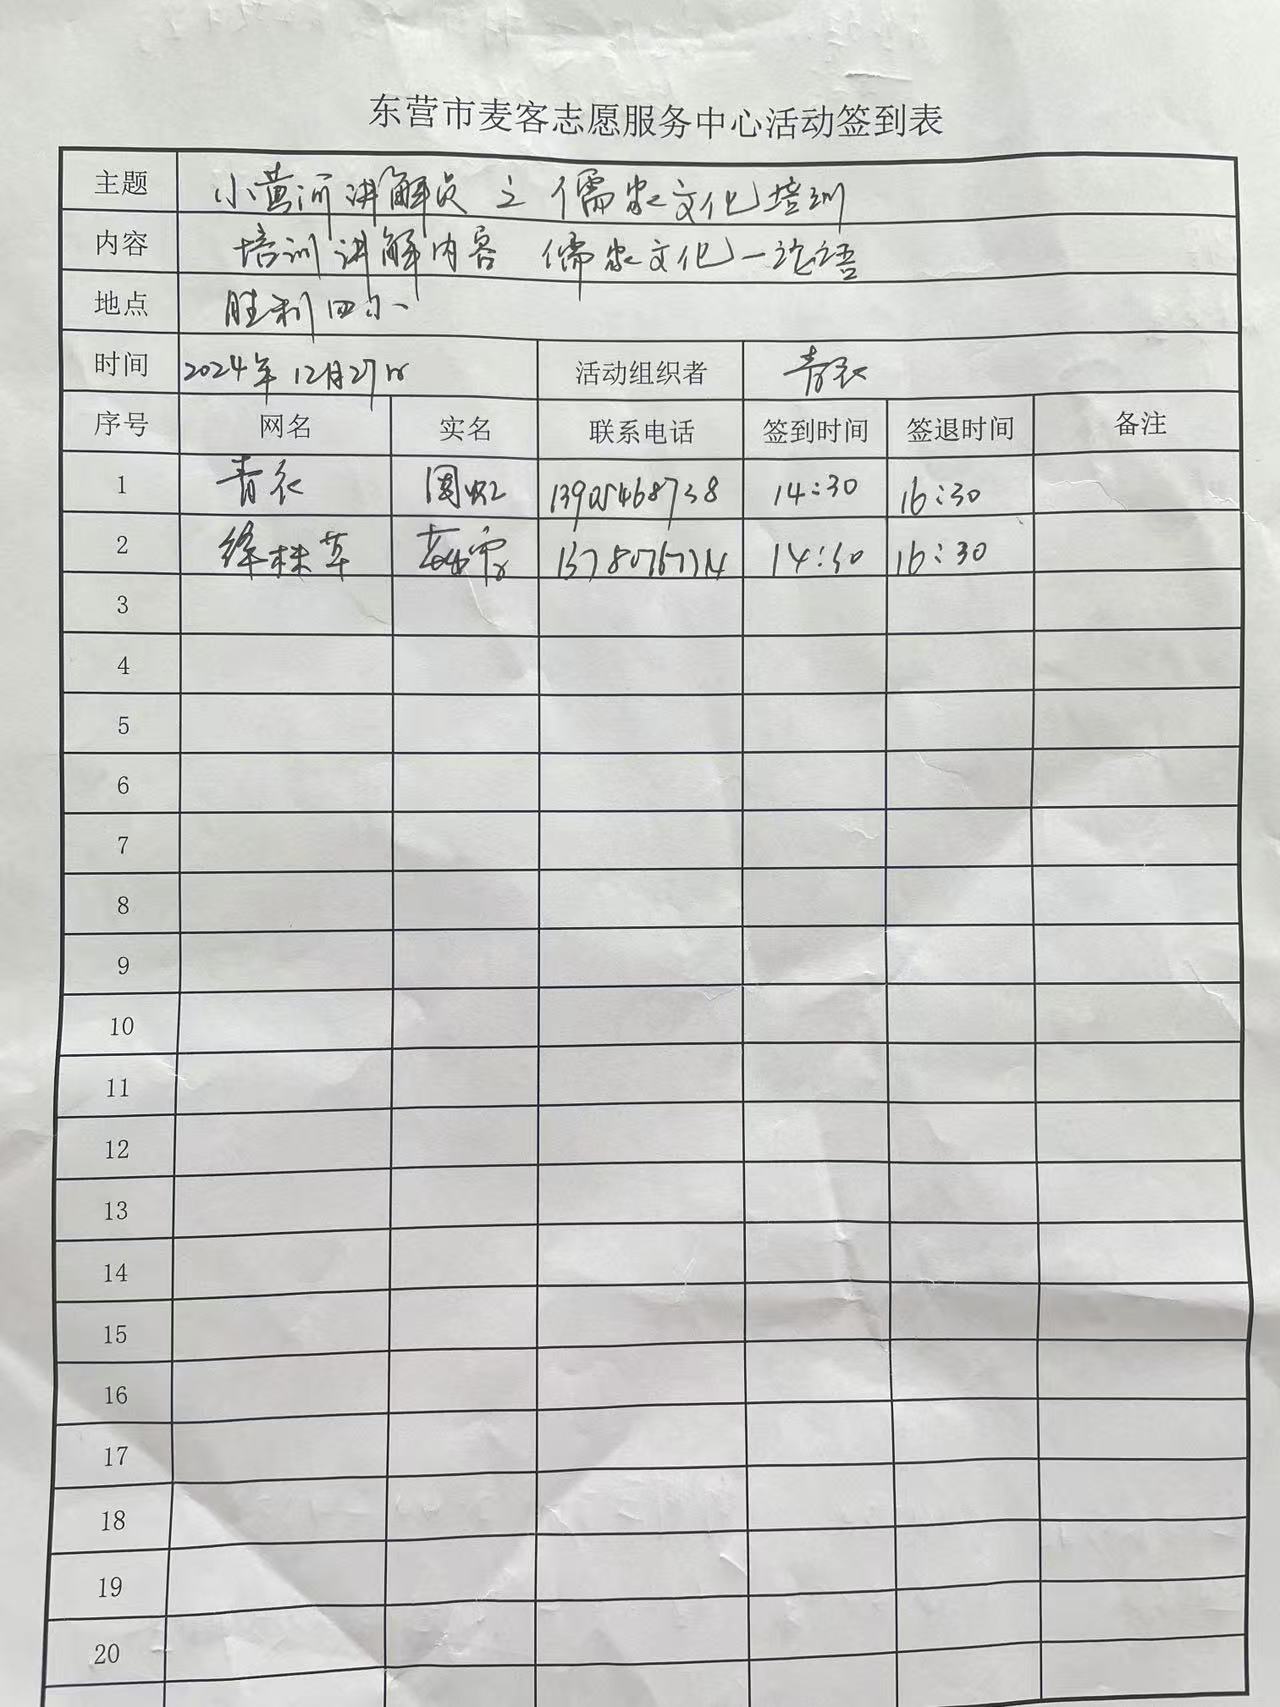 东营市麦客志愿服务中心活动签到表
主题 小黄河讲解员之儒家文化培训
内容 培训讲解内容 儒家文化—论语
地点 胜利四小
时间 2024年12月27日 活动组织者 青衣
序号 网名 实名 联系电话 签到时间 签退时间 备注
1 青衣 周虹 13905468738 14:30 16:30
2 绛株草 14:30 16:30
3
4
5
6
7
8
9
10
11
12
13
14
15
16
17
18
19
20